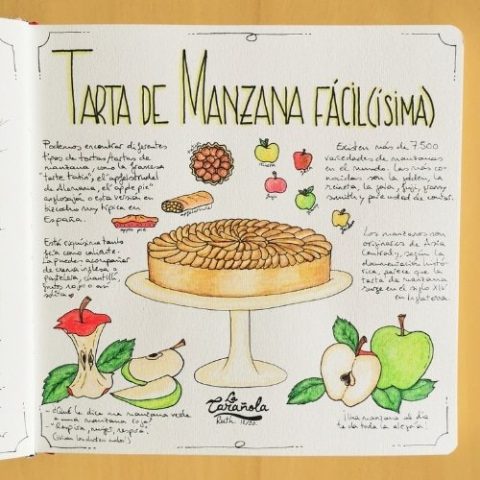 TARTA DE MANZANA FÁCIL(ÍSIMA)
Podemos encontrar diferentes
tipos de tartas/tartas de
manzana, como la francesa
"tarte tatin", el apfelstrudel
de Alemania, el "apple pie"
anglosajón o esta versión en
bizcocho muy típica en
España.
Está exquisita tanto
fría como caliente.
La puedes acompañar
de crema inglesa o
pastelera, chantilly,
frutos rojos o así
solita
apple pie
apfelstrudel
Existen más de 7500
variedades de manzanas
en el mundo. Las más
conocidas son la golden, la
reineta, la gala, fuji, granny
smith y para de contar.
Los manzanos son
originarios de Asia
Central y, según la
documentación histó-
rica, parece que la
tarta de manzana
surge en el siglo XIV
en Inglaterra.
- ¿Qué le dice una manzana verde
a una manzana roja?
- "¡Respira, mujer, respira!"
La
Tarañola
¡Una manzana al día
te da toda la alegría!